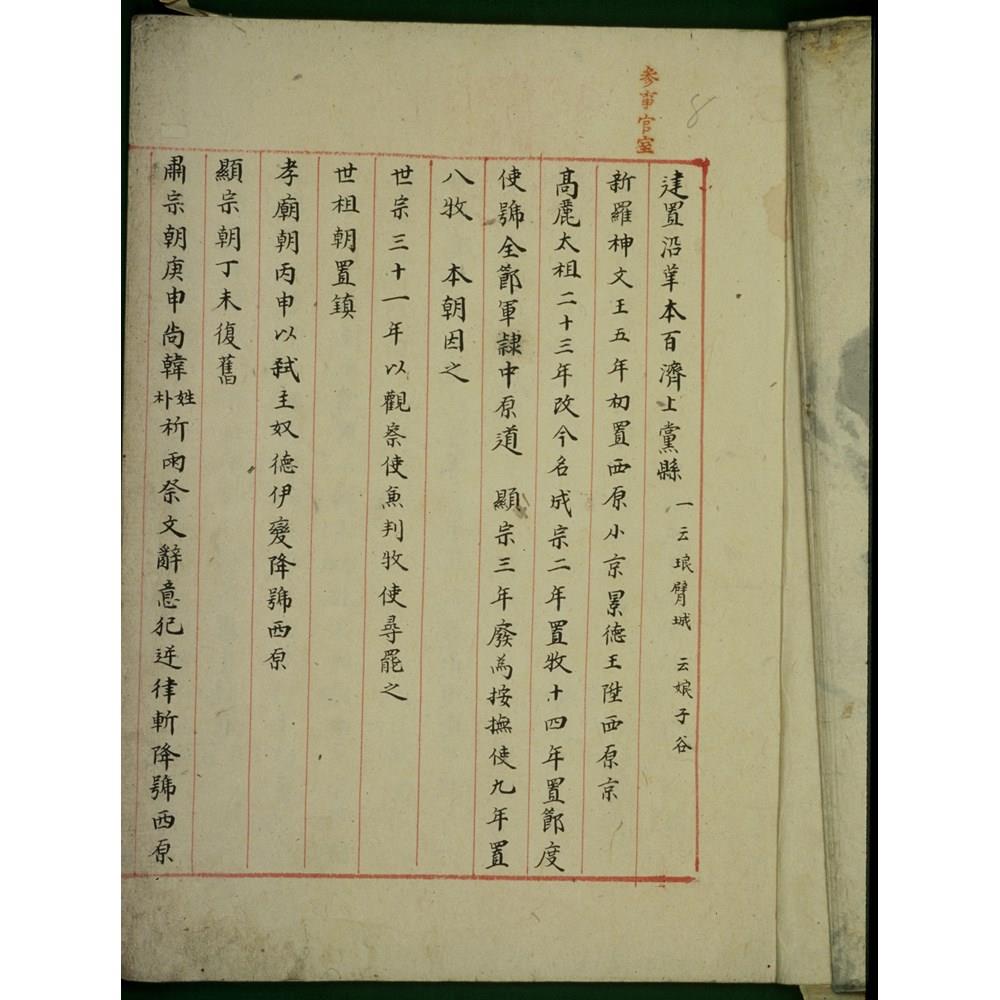 參事官室
8
建置沿革本百濟上黨縣 一云琅臂城 云娘子谷
新羅神文王五年初置西原小京景德王陞西原京
高麗太祖二十三年改今名成宗二年置牧十四年置節度
使號全節軍隷中原道 顯宗三年廢為按撫使九年置
八牧 本朝因之
世宗三十一年以觀察使兼判牧使尋罷之
世祖朝置鎮
孝廟朝丙申以弑主奴德伊變降號西原
顯宗朝丁未復舊
肅宗朝庚申尙韓姓朴祈雨祭文辭意犯逆律斬降號西原